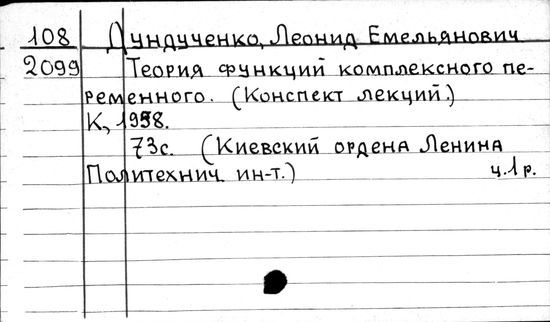 108 Дундученко, Леонид Емельянович
2099 Теория функций комплексного пе-
ременного. (Конспект лекций.)
К, 1958.
73с. (Киевский ордена Ленина
Политехнич. ин-т.) ц.1р.